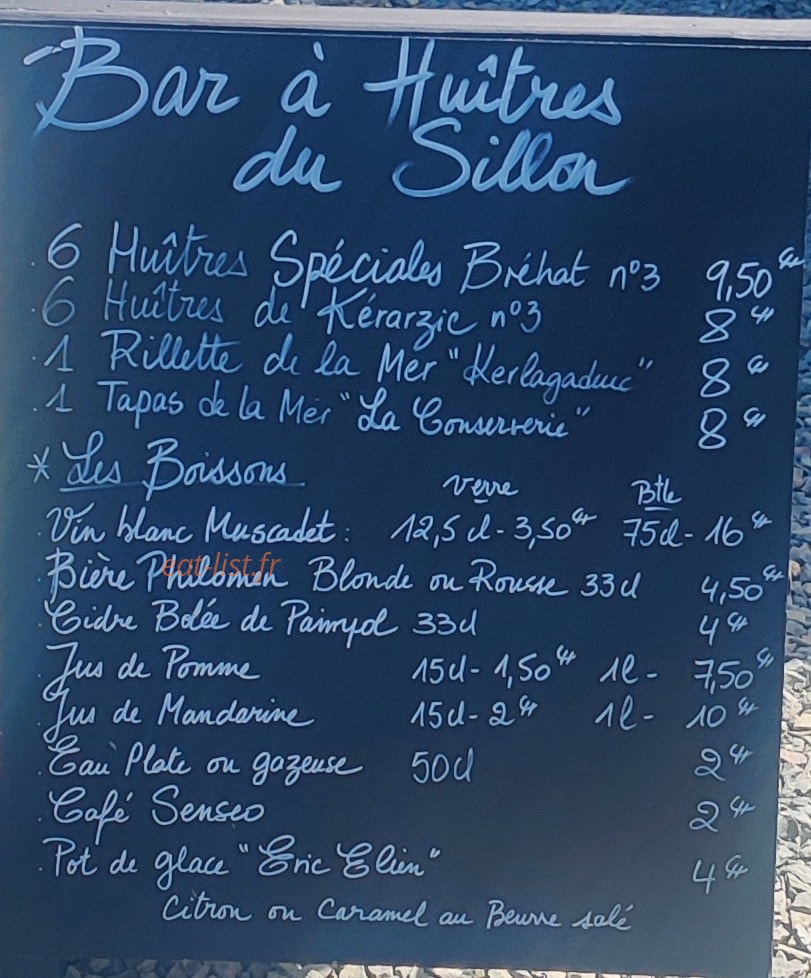 Bar à Huîtres
du Sillon
. 6 Huîtres Spéciales Bréhat n°3 9,50 €
. 6 Huîtres de Kérarzic n°3 8 €
. 1 Rillette de la Mer "Kerlagaduc" 8 €
. 1 Tapas de la Mer "La Conserverie" 8 €
* Les Boissons Verre Btle
. Vin blanc Muscadet : 12,5 cl - 3,50 € 75cl - 16 €
. Bière Philomen Blonde ou Rousse 33cl 4,50 €
eat-list.fr
. Cidre Bolée de Paimpol 33cl 4 €
. Jus de Pomme 15cl - 1,50 € 1l - 7,50 €
. Jus de Mandarine 15cl - 2 € 1l - 10 €
. Eau Plate ou gazeuse 50cl 2 €
. Café Senseo 2 €
. Pot de glace "Eric Elien" 4 €
Citron ou Caramel au Beurre salé